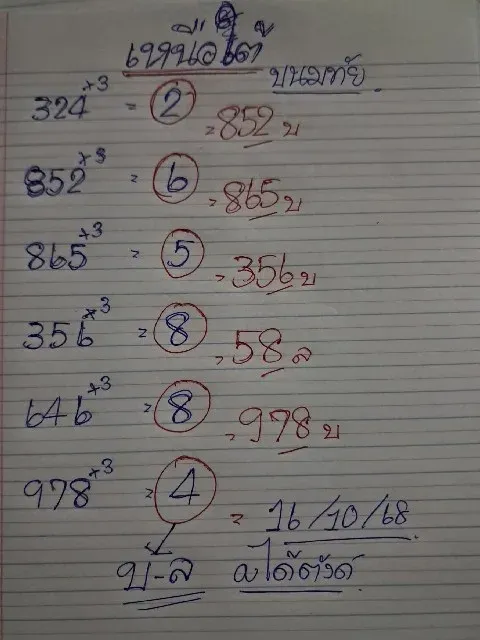 เหนือใต้
ขนมทัย
324×3 = 2 = 852 บ
852×3 = 6 = 865 บ
865×3 = 5 = 356 บ
356×3 = 8 = 58 ล
646×3 = 8 = 978 บ
978×3 = 4 = 16/10/68
บ-ล